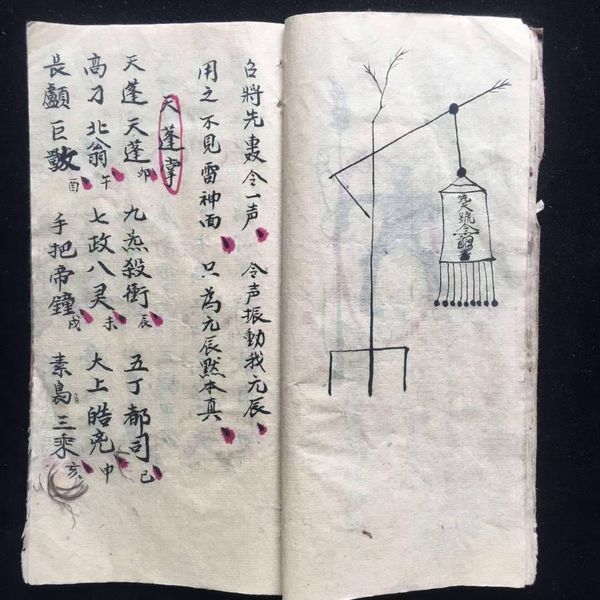 召將先轟令一声 令声振動我元辰
用之不見雷神面 只為元辰默本真
天蓬掌
天蓬天蓬卯 九炁殺衝辰 五丁都司巳
高刀北翁午 七政八灵未 大上皓兇申
長顱巨 酉 手把帝鐘戌 素梟三 亥